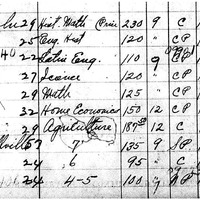 29 Hist. Math (Prin 230 9 C
25 Eng Hist 120 " CP
40 22 Latin Eng. 110 9 CP
27 Science 120 " CP
29 Math 125 " CP
32 Home Economics 150 12 CP
29 Agriculture 187 50 12 C
57 7 135 9 SP
24 6 95 " C
24 4-5 100 " SP